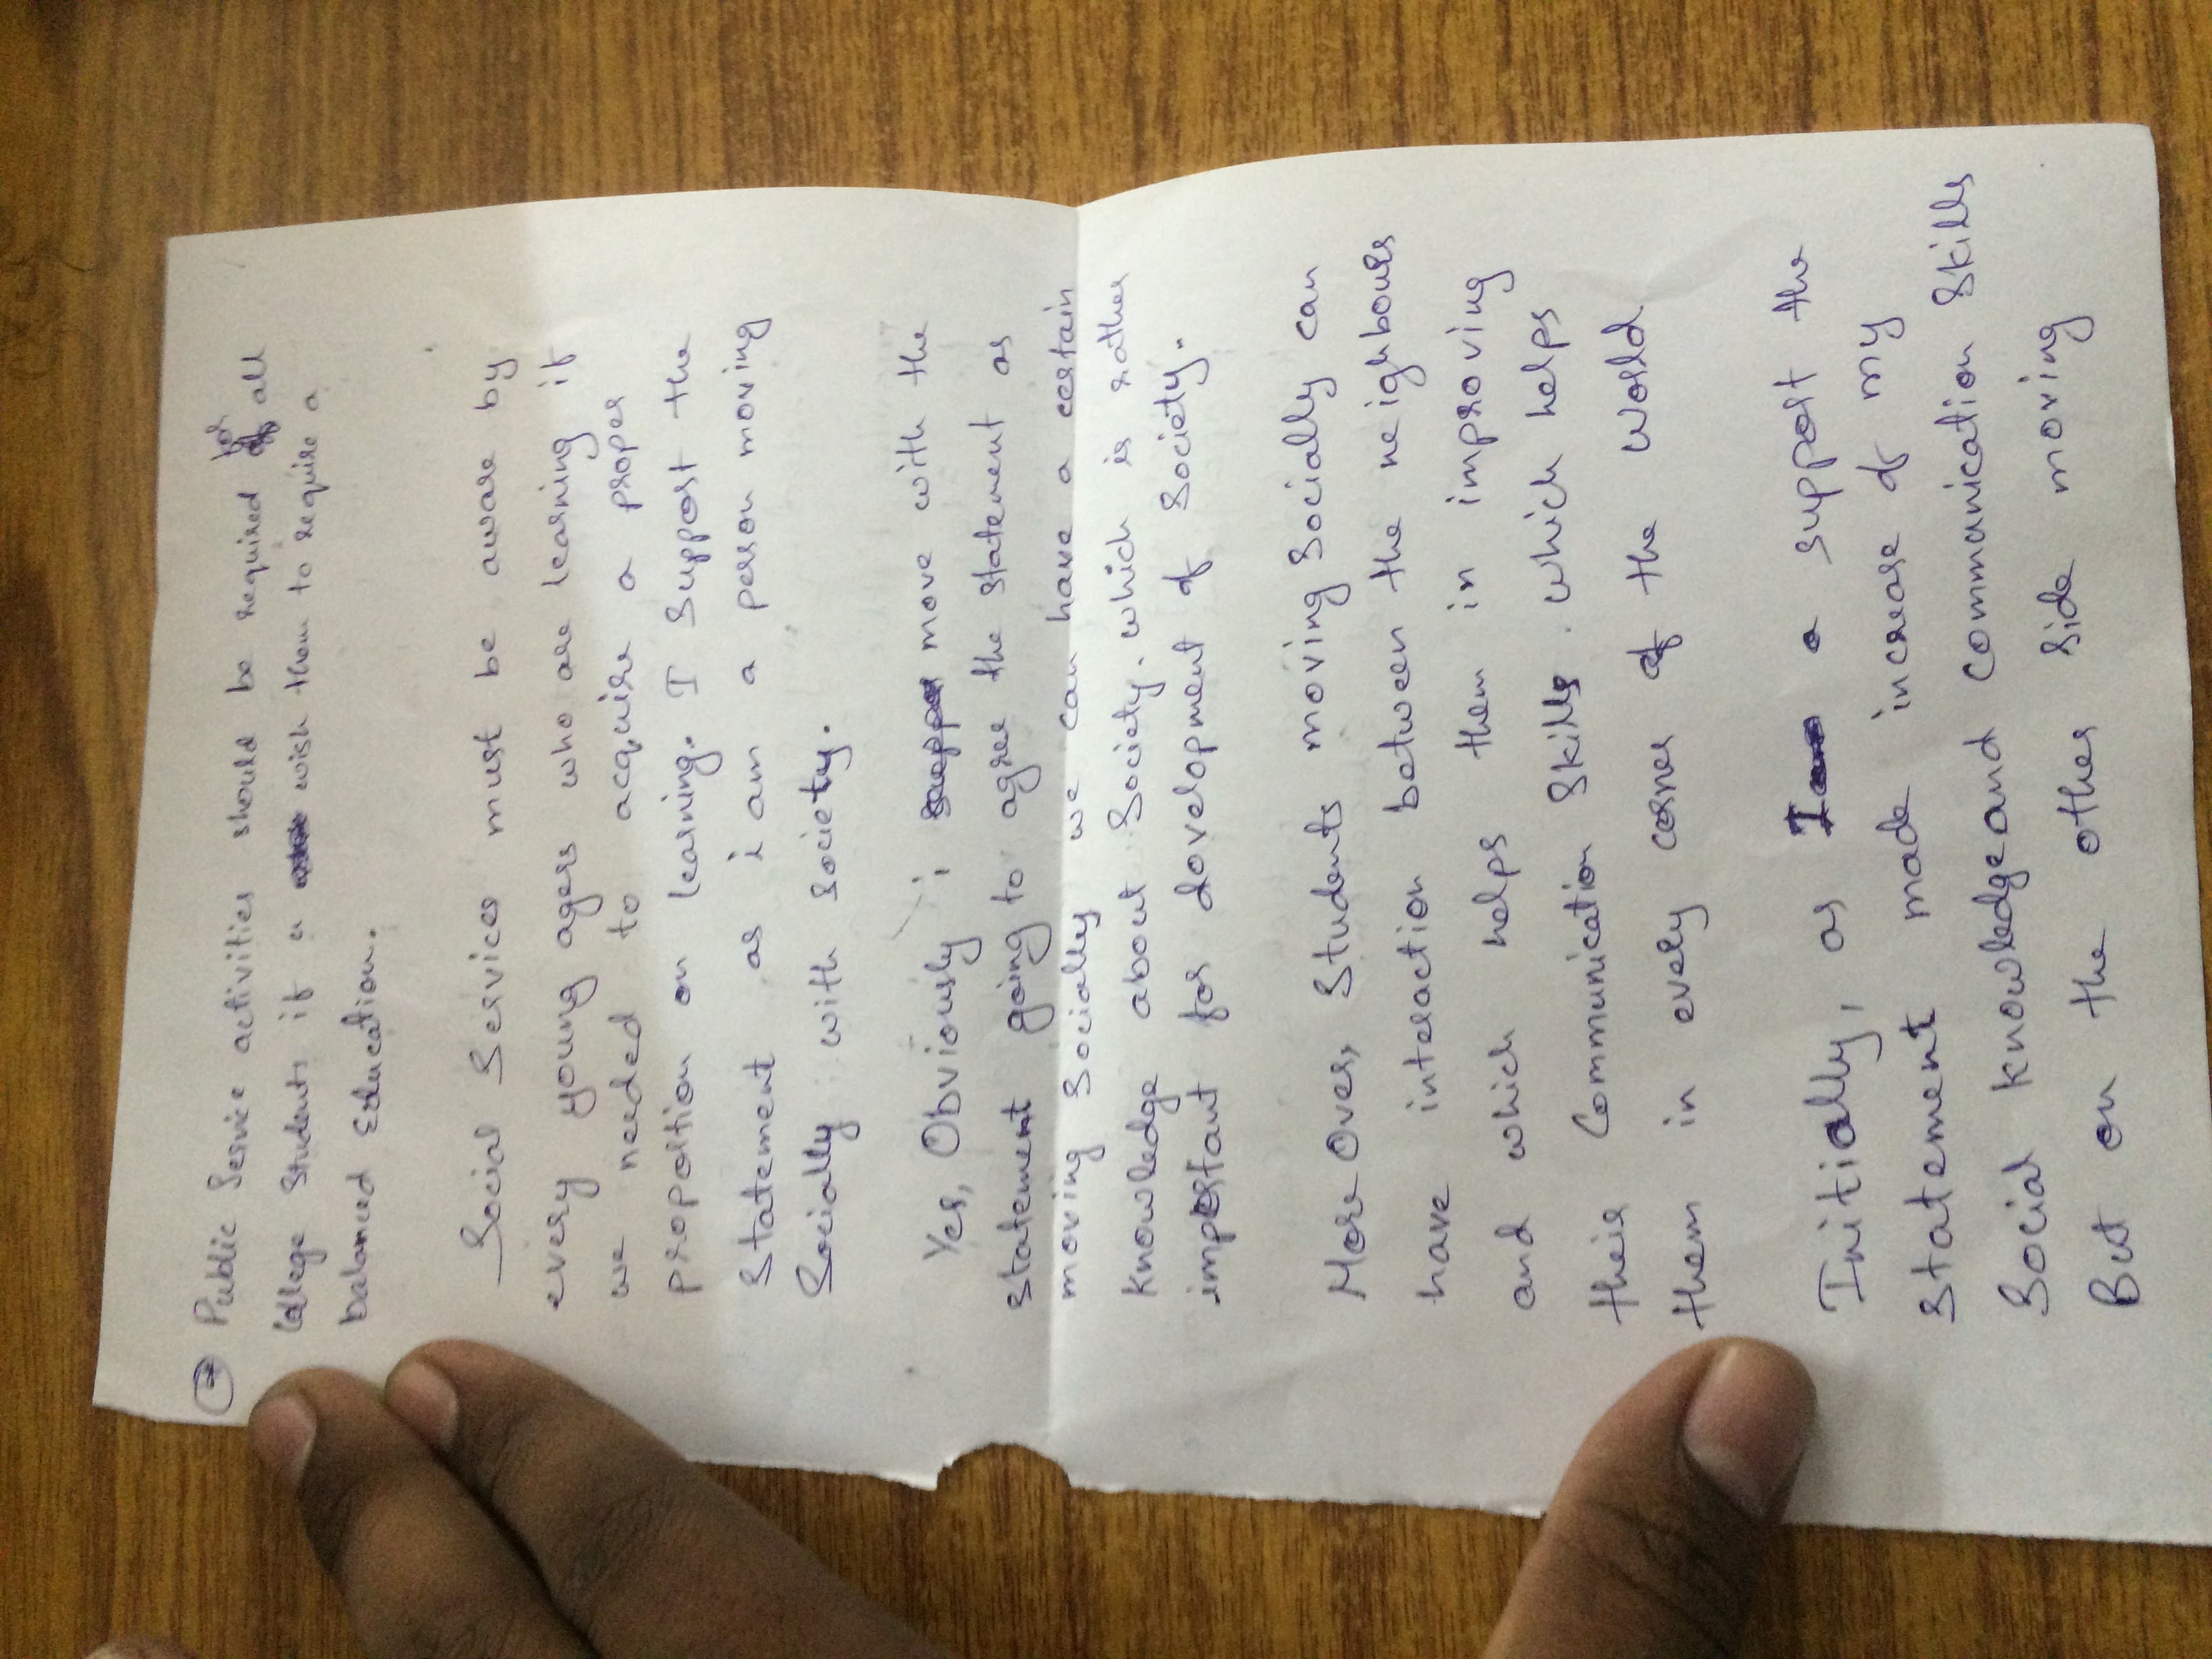 Public Service activities should be required for all
College Students if a wish them to require a
balanced Education.
Social Services must be aware by
every young agers who are learning if
we needed to acquire a proper
proportion on learning. I Support the
Statement as i am a person moving
Socially with society.
Yes, Obviously i move with the
statement going to agree the statement as
moving Socially we can have a certain
knowledge about Society. which is rather
important for dovelopment of Society.
More Over, Students moving Socially can
have interaction between the neighbours
and which helps them in improving
their Communication Skills. which helps
them in every corner of the World
Initially, as I a support the
statement made increase of my
Social knowledge and communication Skills
But on the other Side moving